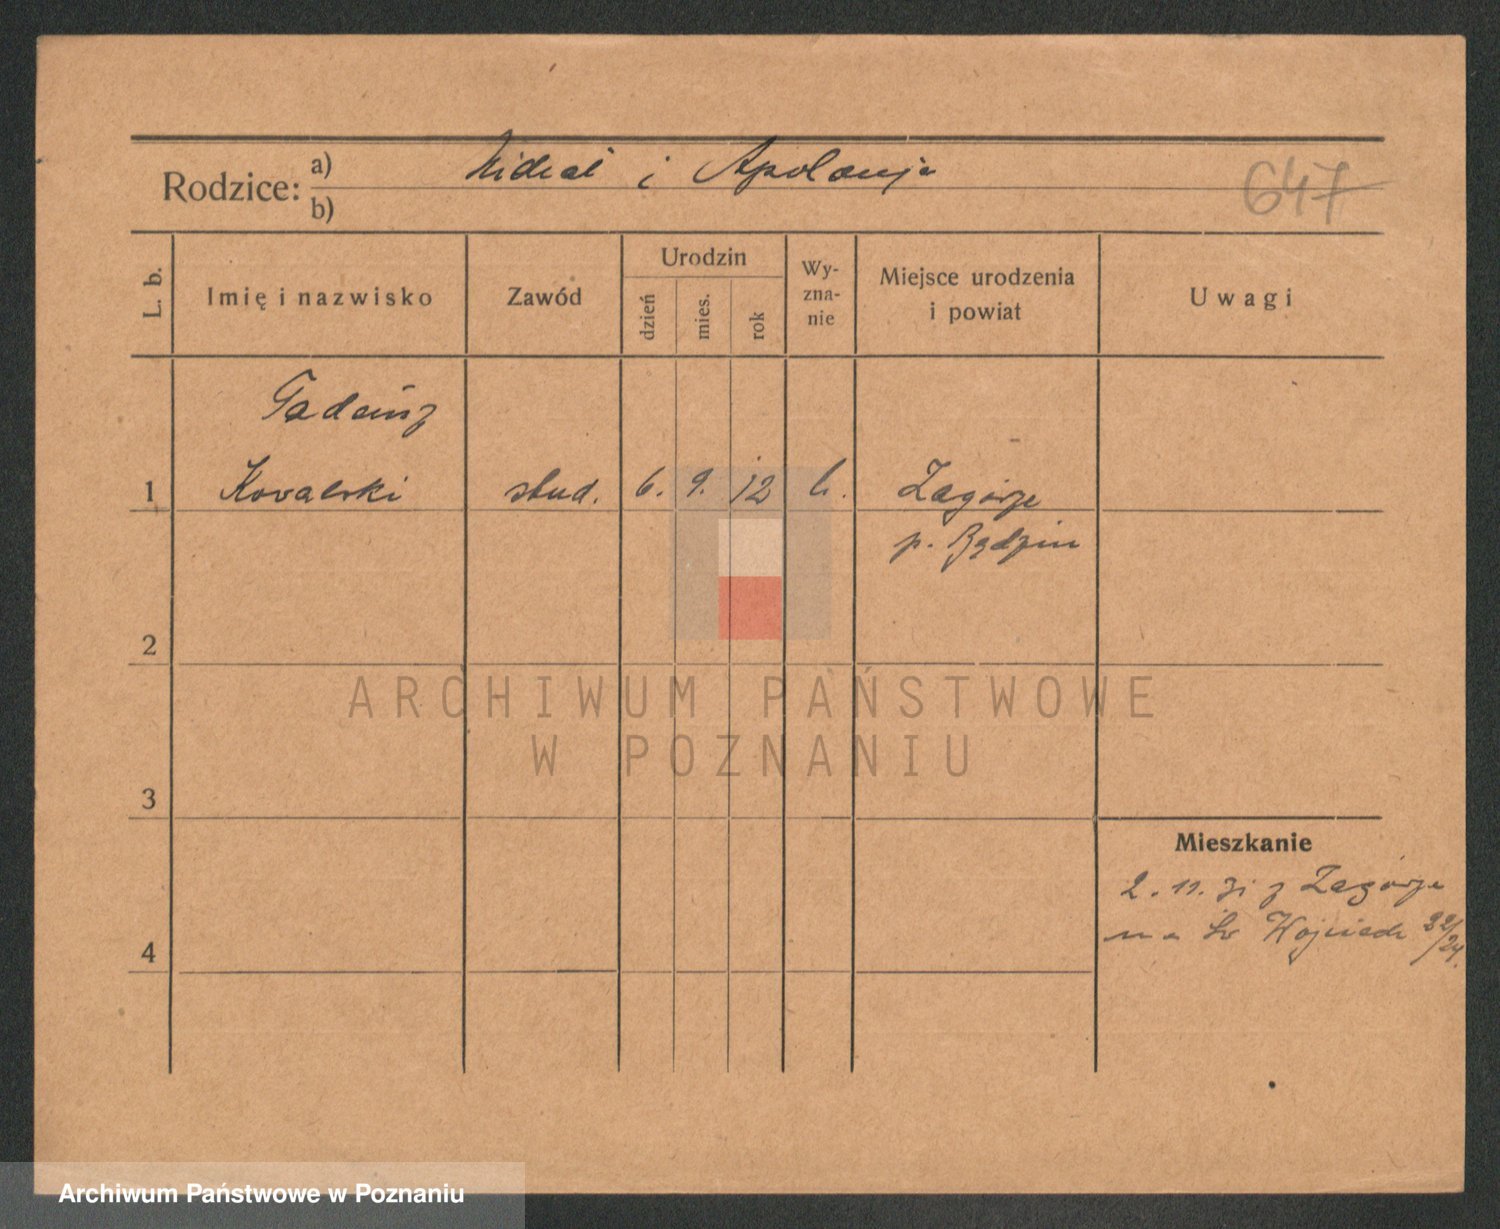 Rodzice: a) Michał i Apolonja
b)
647
L. b.
Imię i nazwisko
Zawód
Urodzin
dzień
mies.
rok
Wy-
zna-
nie
Miejsce urodzenia
i powiat
Uwagi
Tadeusz
1 Kowalski stud. 6. 9. 12 k. Zagórze
p. Będzin
2
ARCHIWUM PAŃSTWOWE
W POZNANIU
3
Mieszkanie
2. 11. 31 z Zagórze
na Św Wojciech 22/24.
4
Archiwum Państwowe w Poznaniu